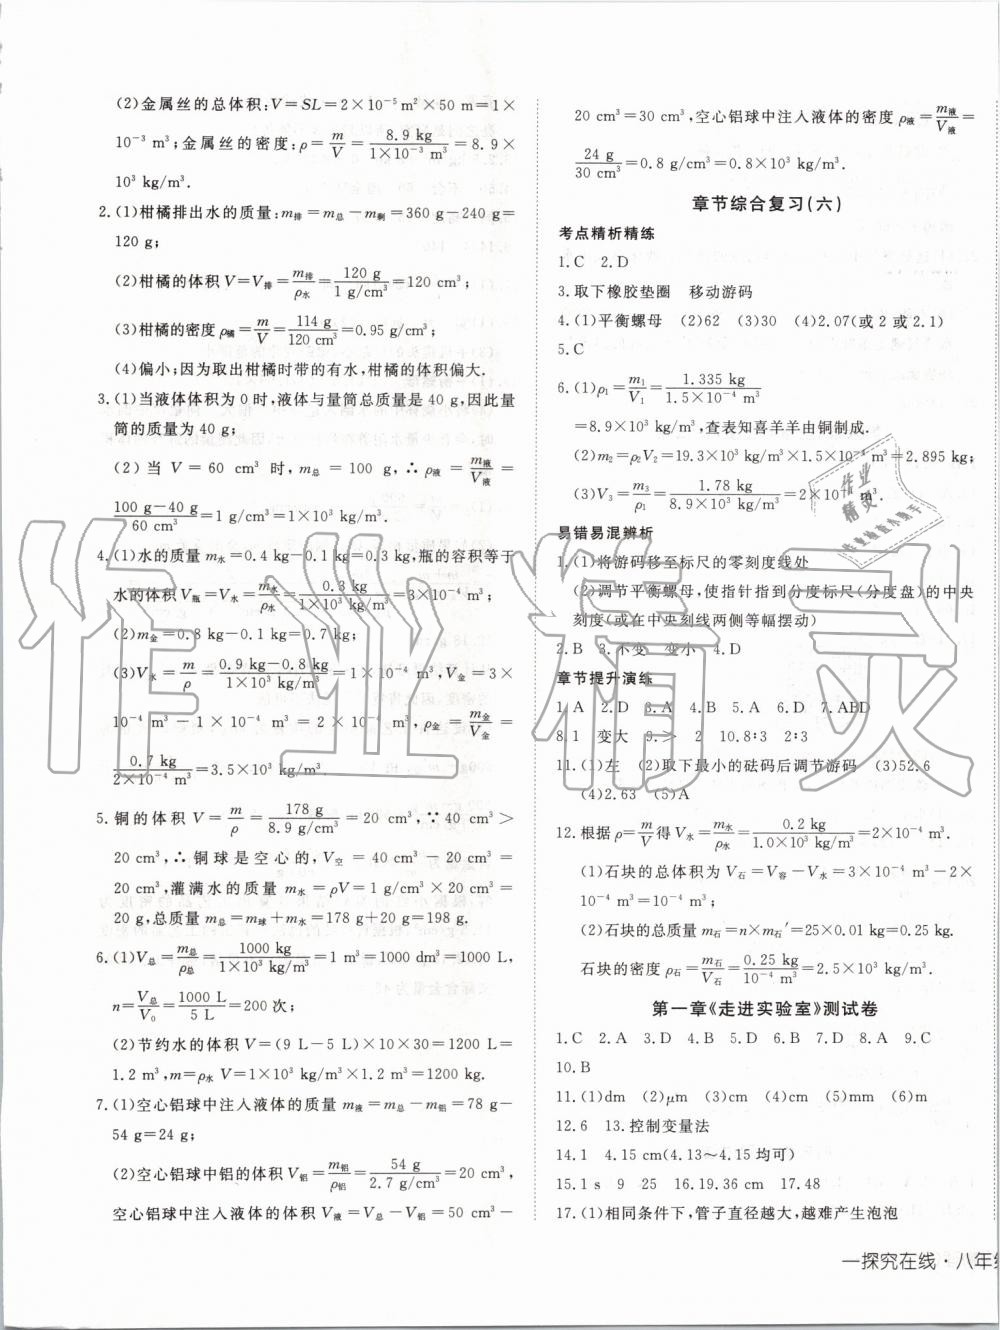 (2)金属丝的总体积:V=SL=2×10⁻⁵m²×50 m=1×
10⁻³ m³;金属丝的密度:ρ=m/V=8.9 kg/(1×10⁻³ m³)=8.9×
10³ kg/m³.
2.(1)柑橘排出水的质量:m排=m总-m剩=360 g-240 g=
120 g;
(2)柑橘的体积 V=V排=m排/ρ水=120 g/(1 g/cm³)=120 cm³;
(3)柑橘的密度 ρ橘=m/V=114 g/(120 cm³)=0.95 g/cm³;
(4)偏小;因为取出柑橘时带的有水,柑橘的体积偏大.
3.(1)当液体体积为0时,液体与量筒总质量是40 g,因此量
筒的质量为40 g;
(2)当 V=60 cm³ 时,m总=100 g,∴ρ液=m液/V液=
(100 g-40 g)/(60 cm³)=1×10³ kg/m³.
4.(1)水的质量 m水=0.4 kg-0.1 kg=0.3 kg,瓶的容积等于
水的体积 V瓶=V水=m水/ρ水=0.3 kg/(1×10³ kg/m³)=3×10⁻⁴ m³;
(2)m金=0.8 kg-0.1 kg=0.7 kg;
(3)V水=m/ρ=(0.9 kg-0.8 kg)/(1×10³ kg/m³)=1×10⁻⁴ m³,V金=3×
10⁻⁴ m³-1×10⁻⁴ m³=2×10⁻⁴ m³,ρ金=m金/V金=
0.7 kg/(2×10⁻⁴ m³)=3.5×10³ kg/m³.
5.铜的体积 V=m/ρ=178 g/(8.9 g/cm³)=20 cm³,∵40 cm³>
20 cm³,∴铜球是空心的,V空=40 cm³-20 cm³=
20 cm³,灌满水的质量 m水=ρV=1 g/cm³×20 cm³=
20 g,总质量 m总=m球+m水=178 g+20 g=198 g.
6.(1)V总=m总/ρ总=1000 kg/(1×10³ kg/m³)=1 m³=1000 dm³=1000 L,
n=V总/V₀=1000 L/5 L=200 次;
(2)节约水的体积 V=(9 L-5 L)×10×30=1200 L=
1.2 m³,m=ρ水V=1×10³ kg/m³×1.2 m³=1200 kg.
7.(1)空心铝球中注入液体的质量 m液=m总-m铝=78 g-
54 g=24 g;
(2)空心铝球中铝的体积 V铝=m铝/ρ铝=54 g/(2.7 g/cm³)=20 cm³,
空心铝球中注入液体的体积 V液=V总-V铝=50 cm³-
20 cm³=30 cm³,空心铝球中注入液体的密度 ρ液=m液/V液=
24 g/(30 cm³)=0.8 g/cm³=0.8×10³ kg/m³.
章节综合复习(六)
考点精析精练
1.C 2.D
3.取下橡胶垫圈 移动游码
4.(1)平衡螺母 (2)62 (3)30 (4)2.07(或2或2.1)
5.C
6.(1)ρ₁=m₁/V₁=1.335 kg/(1.5×10⁻⁴ m³)
=8.9×10³ kg/m³,查表知喜羊羊由铜制成.
(2)m₂=ρ₂V₂=19.3×10³ kg/m³×1.5×10⁻⁴ m³=2.895 kg;
(3)V₃=m₃/ρ₁=1.78 kg/(8.9×10³ kg/m³)=2×10⁻⁴ m³.
易错易混辨析
1.(1)将游码移至标尺的零刻度线处
(2)调节平衡螺母,使指针指到分度标尺(分度盘)的中央
刻度(或在中央刻线两侧等幅摆动)
2.B 3.不变 变小 4.D
章节提升演练
1.A 2.D 3.A 4.B 5.A 6.D 7.ABD
8.1 变大 9.> 2 10.8:3 2:3
11.(1)左 (2)取下最小的砝码后调节游码 (3)52.6
(4)2.63 (5)A
12.根据ρ=m/V得 V水=m水/ρ水=0.2 kg/(1.0×10³ kg/m³)=2×10⁻⁴ m³.
(1)石块的总体积为 V石=V容-V水=3×10⁻⁴ m³-2×
10⁻⁴ m³=10⁻⁴ m³;
(2)石块的总质量 m石=n×m石′=25×0.01 kg=0.25 kg.
石块的密度 ρ石=m石/V石=0.25 kg/(10⁻⁴ m³)=2.5×10³ kg/m³.
第一章《走进实验室》测试卷
1.C 2.A 3.D 4.D 5.D 6.B 7.D 8.A 9.C
10.B
11.(1)dm (2)μm (3)cm (4)cm (5)mm (6)m
12.6 13.控制变量法
14.1 4.15 cm(4.13～4.15均可)
15.1 s 9 25 16.19.36 cm 17.48
17.(1)相同条件下,管子直径越大,越难产生泡泡
一探究在线·八年级
作业精灵
作业
精灵